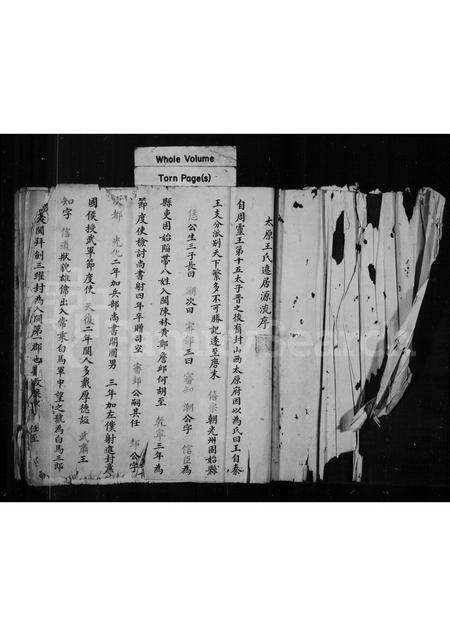 Whole Volume
Torn Page(s)
太原王氏遷居源流序
自周靈王第十五太子晉之後裔封山西太原府因以為氏曰王自秦
王支分派別天下繁多不可勝記迄至唐末 僖宗朝光州固始縣
恁公生三子長曰 潮次曰 審邽三曰 審知 潮公字 信臣為
縣吏固始臨帶八姓入閩陳林黃鄭詹邱何胡至 乾寧三年為
節度使檢討尚書射四年卒贈司空 審邽公嗣其任 知公字
光化二年加兵部尚書開國男 三年加左僕射進封
國侯授武軍節度使 天復二年閩人多戴厚德謚 武肅王
知字 信通狀貌雄偉出入常乘白馬軍中望之號為白馬三郎
閩拜劍三躍封為八閩第一郡也